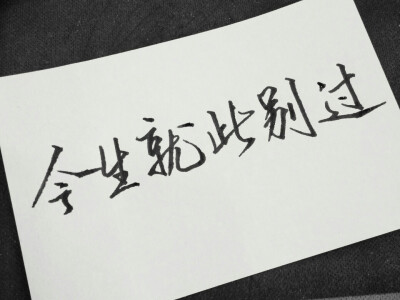 今生就此别过